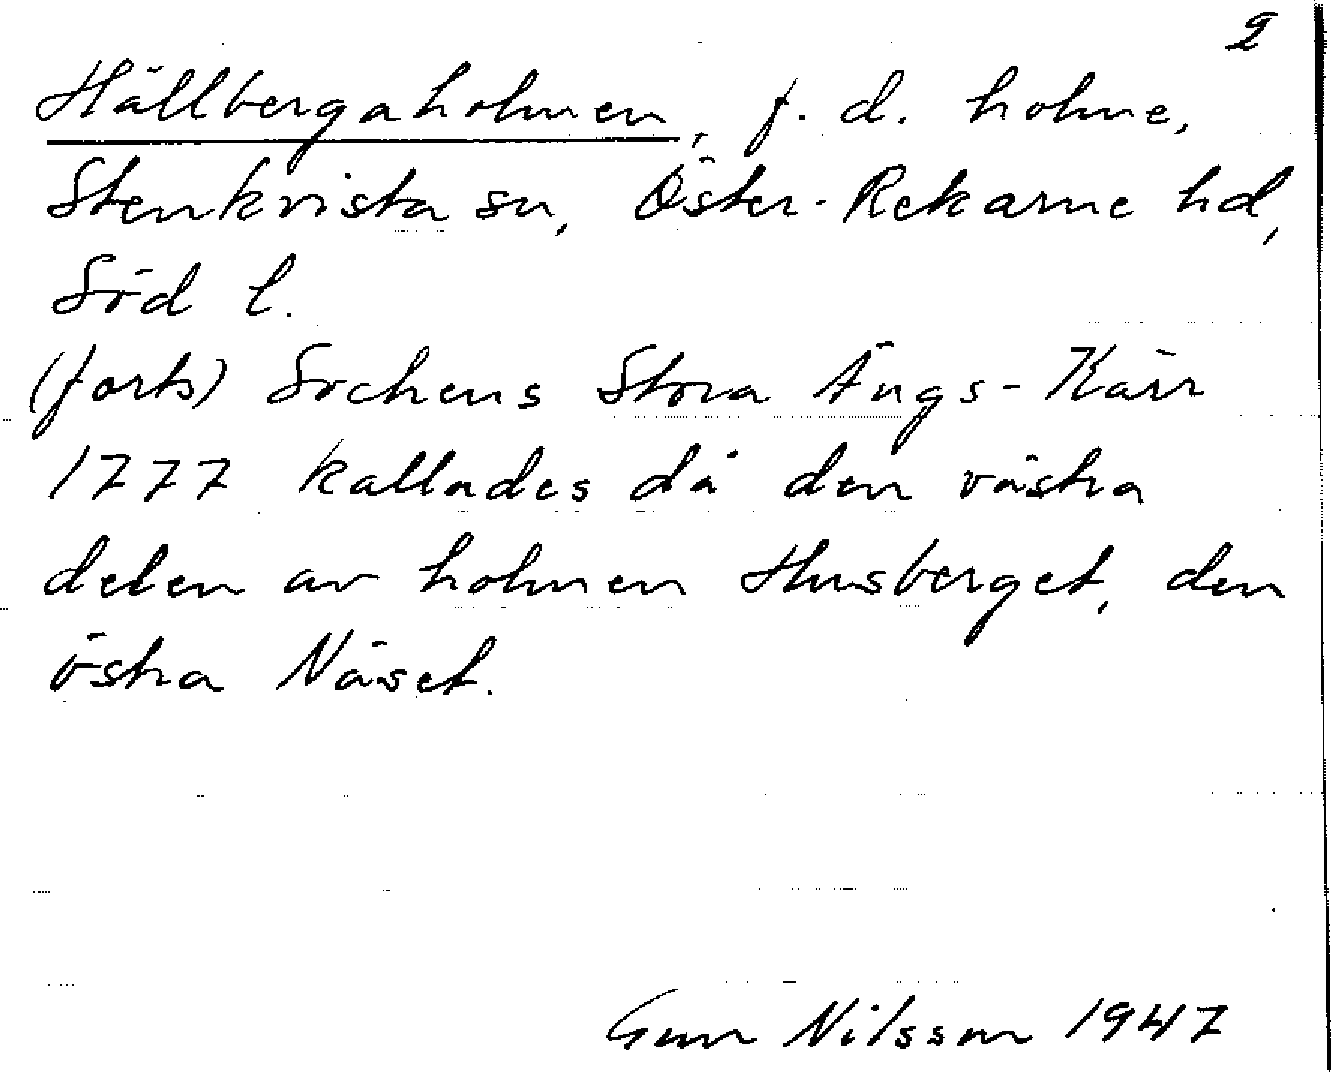 2
Hällbergaholmen, f. d. holme,
Stenkvista sn, Öster-Rekarne hd,
Söd l.
(forts) Sochens Stora Ängs-Kärr
1777 kallades då den västra
delen av holmen Husberget, den
östra Näset.
Gun Nilsson 1947